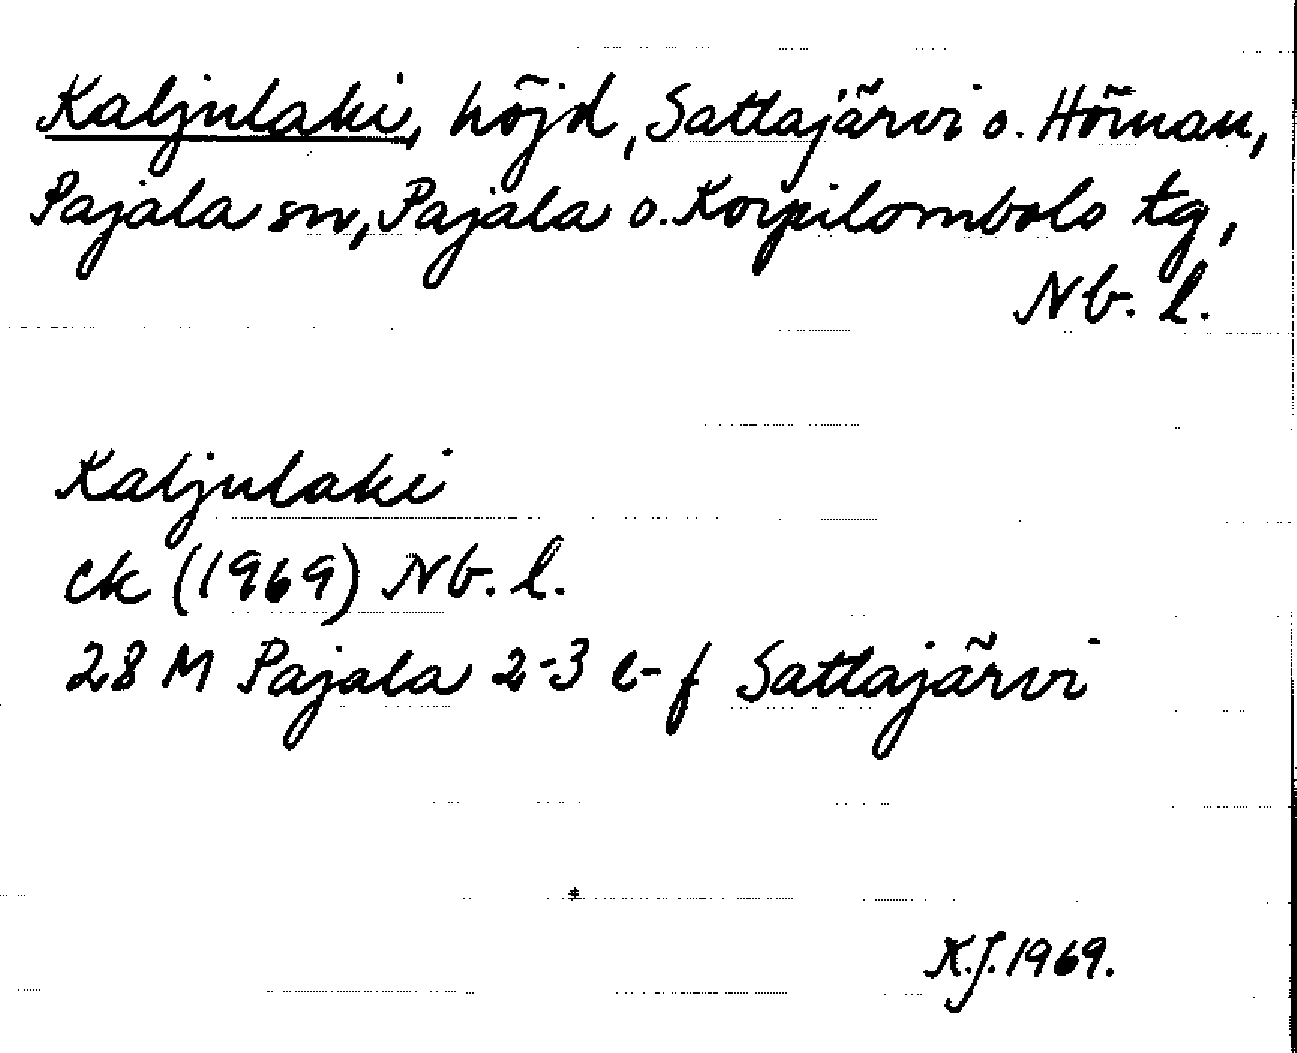 Kaljulaki, höjd, Sattajärvi o. Hörnan,
Pajala sn, Pajala o. Korpilombolo tg,
Nb. l.
Kaljulaki
ek (1969) Nb. l.
28 M Pajala 2-3 e-f Sattajärvi
K.J. 1969.